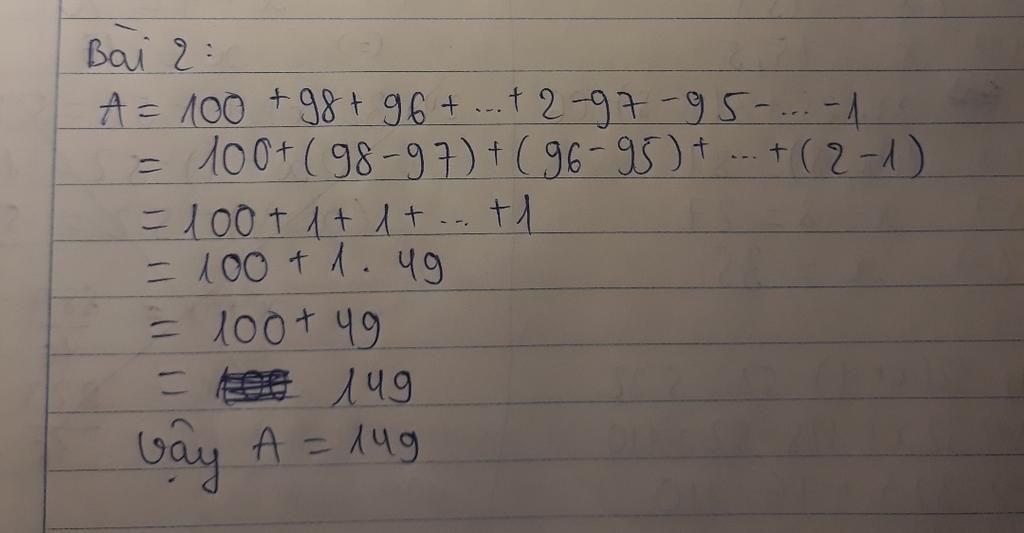 Bài 2:
A = 100 + 98 + 96 + ... + 2 - 97 - 95 - ... - 1
= 100 + (98 - 97) + (96 - 95) + ... + (2 - 1)
= 100 + 1 + 1 + ... + 1
= 100 + 1 . 49
= 100 + 49
= 149
Vậy A = 149